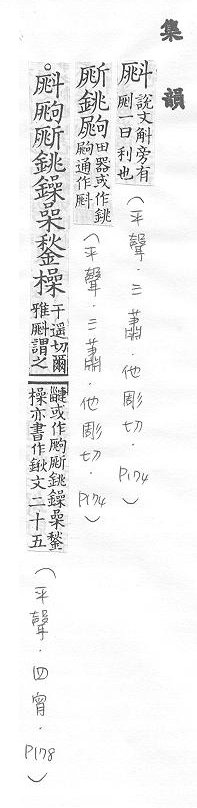 集韻
㪷 說文斛旁有㪷一曰利也（平聲．三蕭．他彫切．P174）
銚 田器或作銚通作㪷（平聲．三蕭．他彫切．P174）
銚鐰喿鍫橾 千遥切爾雅㪷謂之疀或作銚鐰喿鍫橾亦書作鍬文二十五（平聲．四宵．P178）